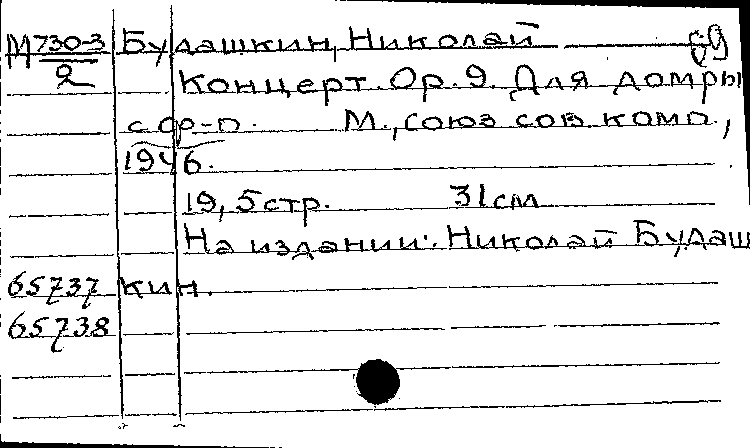 М 730-3 Будашкин, Николай
2 Концерт. Ор. 9. Для домры
с ф-п. М., союз сов. комп.,
1946.
19, 5 стр. 31 см
На издании: Николай Будаш
65737 кин.
65738